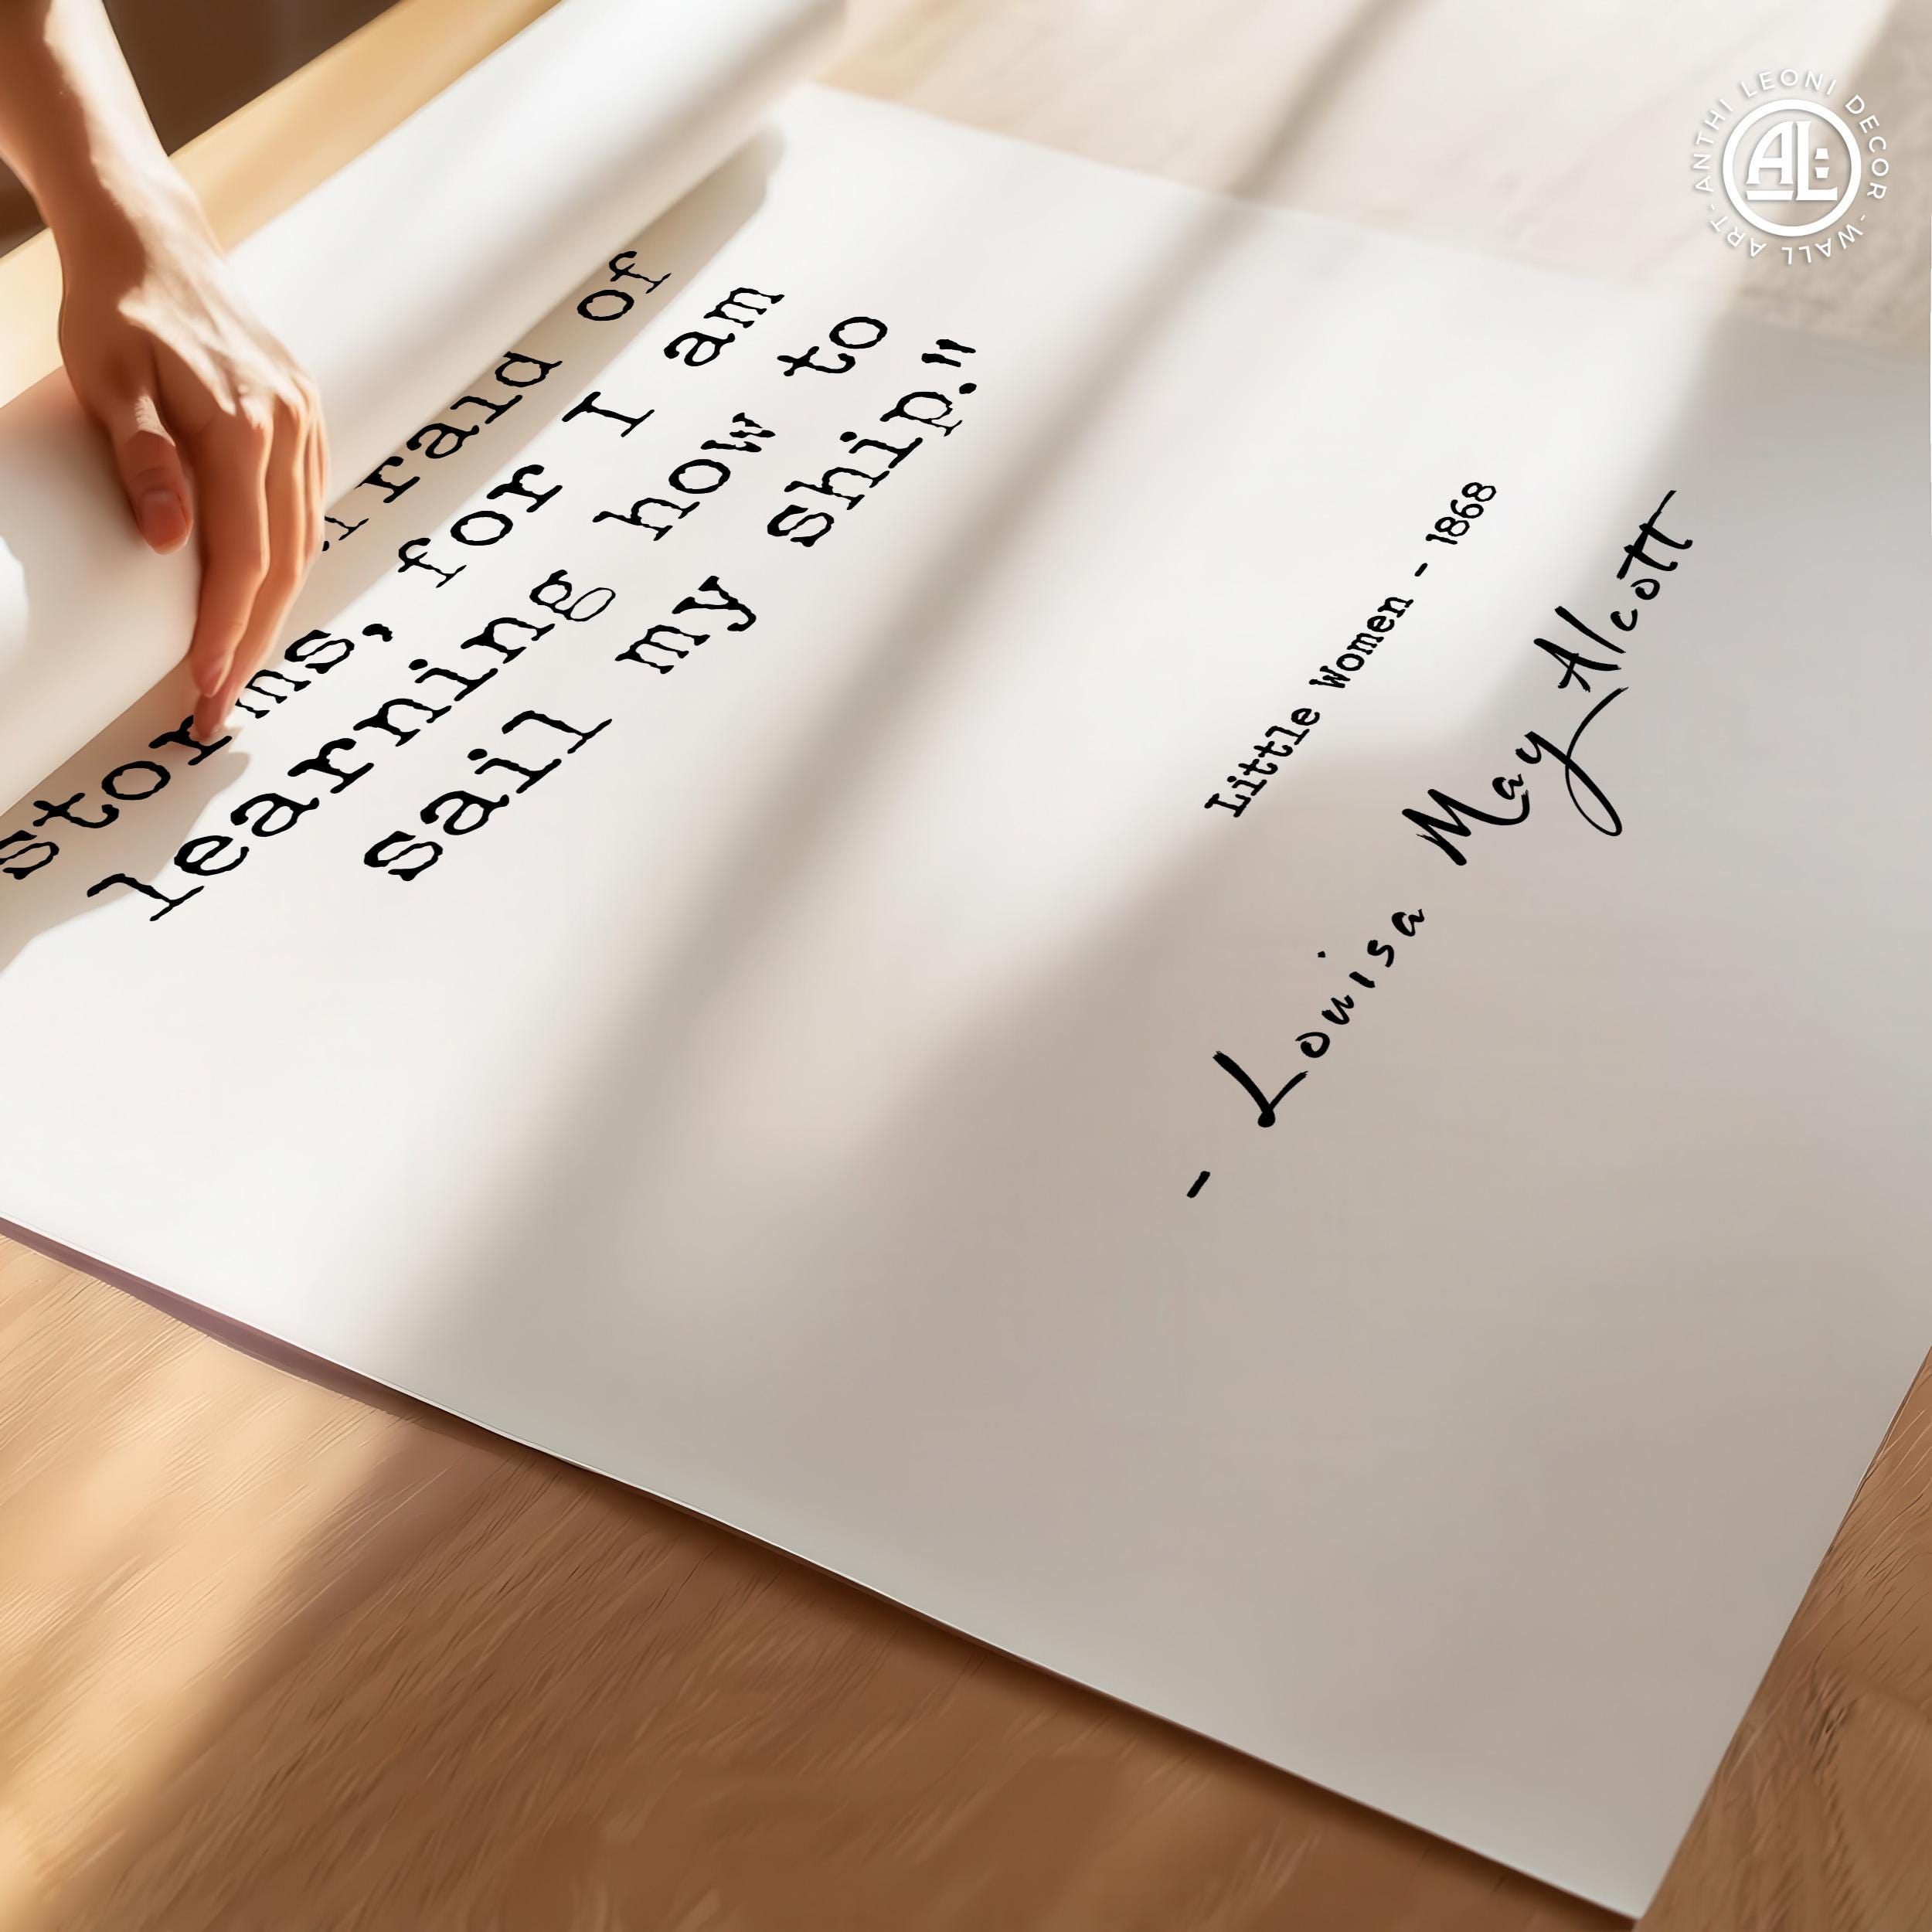 afraid of
storms, for I am
learning how to
sail my ship."
Little Women - 1868
- Louisa May Alcott
ANTHI LEONI DECOR - WALL ART -
AL